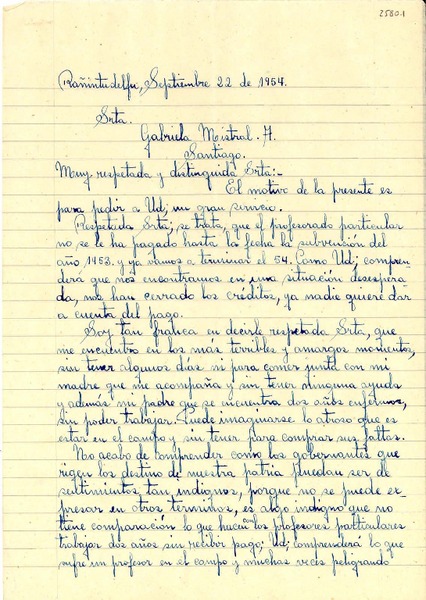 25801
Rañintudelfu, Septiembre 22 de 1954.
Srta.
Gabriela Mistral. A.
Santiago.
Muy respetada y distinguida Srta:-
El motivo de la presente es
para pedir a Ud; un gran servicio.
Respetada Srta; se trata, que el profesorado particular
no se le ha pagado hasta la fecha la subvención del
año 1953. y ya vamos a terminar el 54. Como Ud; compren
derá que nos encontramos en una situación desespera
da, nos han cerrado los créditos, ya nadie quiere dar
a cuenta del pago.
Soy tan franca en decirle respetada Srta, que
me encuentro en los más terribles y amargos momentos,
sin tener algunos días ni para comer junta con mi
madre que me acompaña y sin, tener ninguna ayuda
y además mi padre que se encuentra dos años enfermos,
sin poder trabajar. Puede imaginarse lo atroso que es
estar en el campo y sin tener para comprar sus faltas.
Nos acabo de comprender como los gobernantes que
rigen los destino de nuestra patria puedan ser de
sentimientos tan indignos, porque no se puede ex-
presar en otros terminos, es algo indigno que no
tiene comparación lo que hacen con los profesores particulares
trabajar dos años sin recibir pago; Ud; comprenderá lo que
sufre un profesor en el campo y muchas veces peligrando